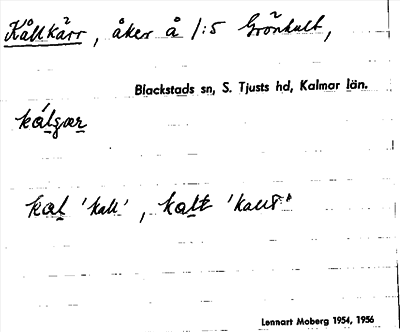 Kållkärr, åker å 1:5 Grönhult,
Blackstads sn, S. Tjusts hd, Kalmar län.
kálgær
kal 'kall', kalt 'kallt'
Lennart Moberg 1954, 1956